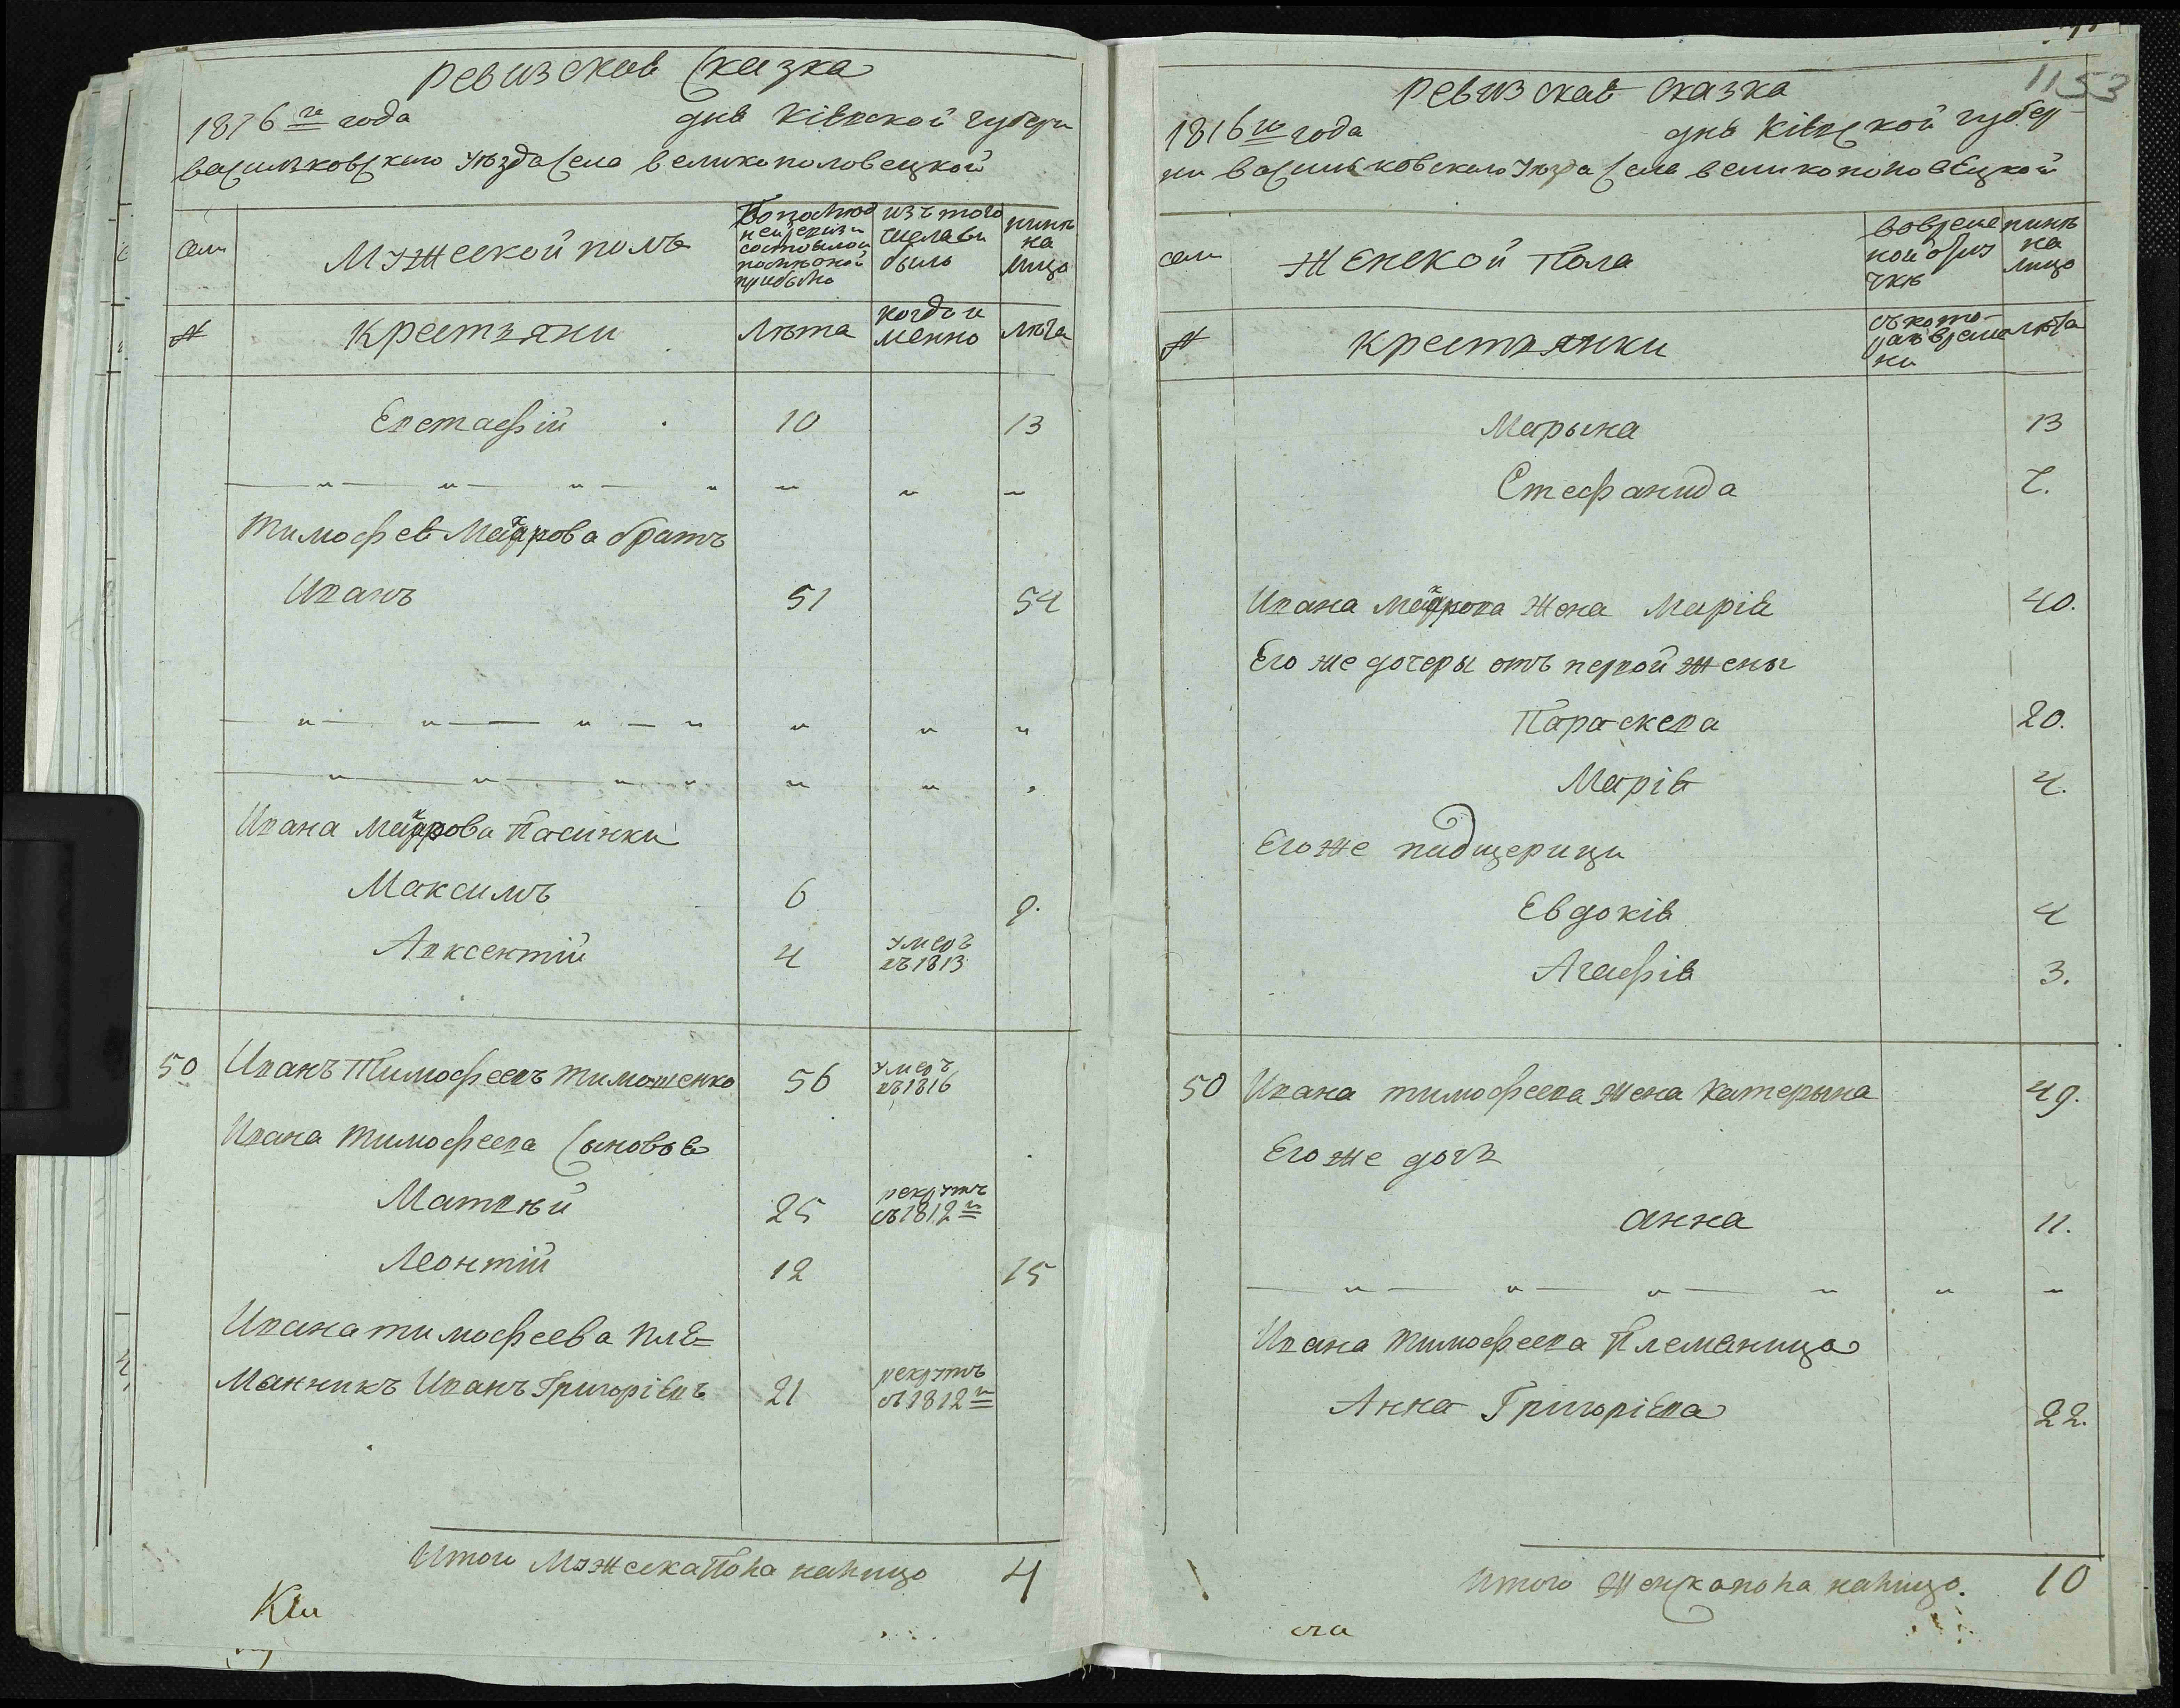 ревизская сказка
1816го года дня Кіевской губерн
васильковского уезда села великополовецкой
семи
Мужеской полъ
По последней ревизи состояло и после оной прибыло
изъ того числа выбыло
ныне на лицо
№
крестьяни
лета
когда именно
лета
Евстафій 10 13
Тимофея Маярова братъ
Иванъ 51 54
Ивана Маярова Пасинки
Максимъ 6 9.
Авксентій 4 умеръ въ 1813
50 Иванъ Тимофеевъ Тимошенко 56 умеръ въ 1816
Ивана Тимофеева сыновья
Матвѣй 25 рекрутъ съ 1812го
Леонтій 12 15
Ивана тимофеева пле=
мянникъ Иванъ Григоріевъ 21 рекрутъ съ 1812го
Итого Мужеска пола налицо 4
1153
ревизская сказка
1816го года дня Кіевской губер
ни васильковского уезда села великополовецкой
семи
Женской пола
вовременой отлучке
ныне на лицо
№
крестьянки
съ котораго времени
лета
Марына 13
Стефанида 7.
Ивана Маярова жена Марія 40.
Его же дочеры отъ первой жены
Параскева 20.
Марія 4.
Его же падщерицы
Евдокія 4
Агафія 3.
50 Ивана тимофеева жена Катерына 49.
Его же дочь
Анна 11.
Ивана Тимофеева Племяница
Анна Григоріева 22.
Итого женска пола налицо. 10